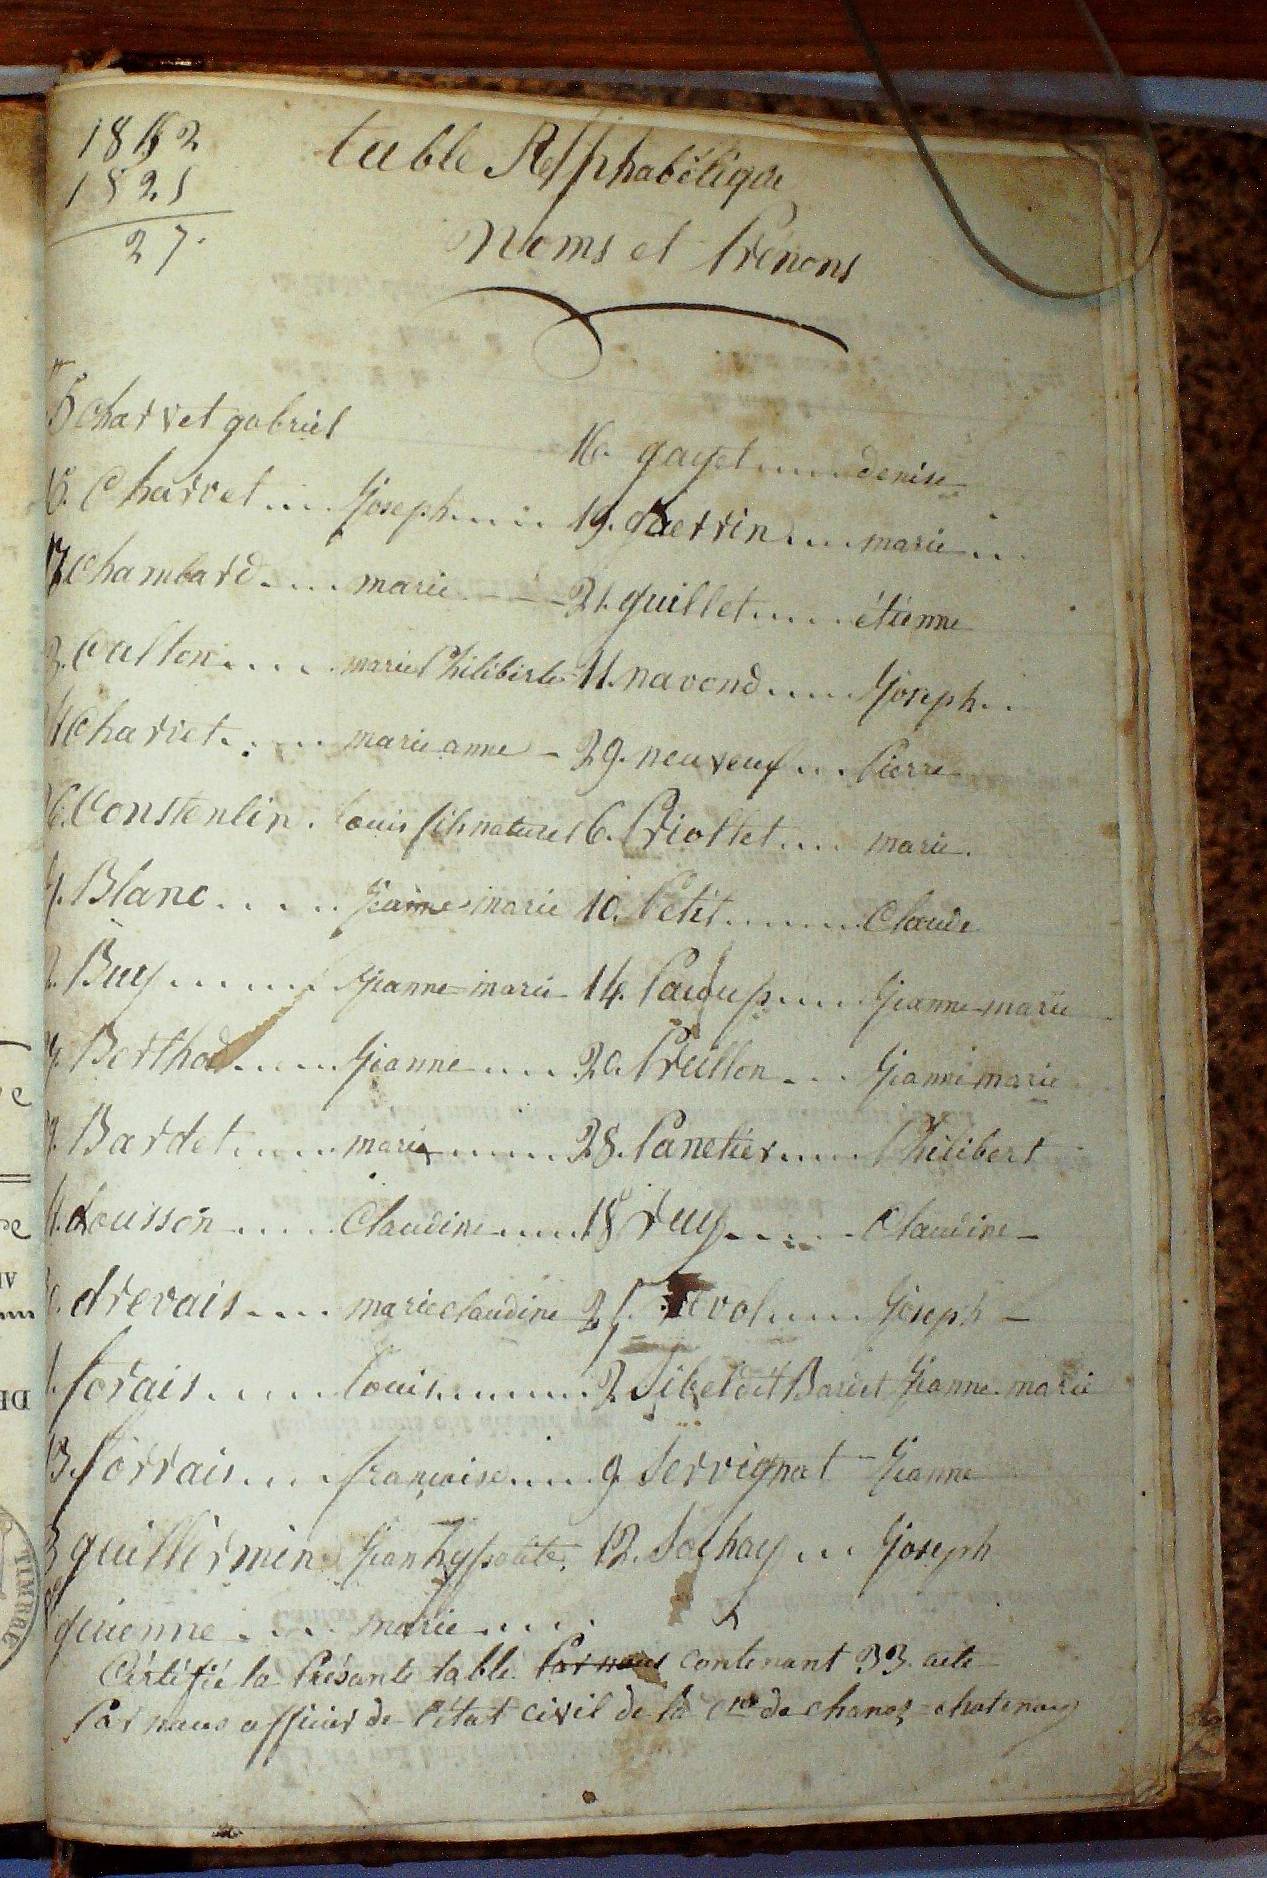 1852
1825
27.
table Alphabétique
Noms et Prénoms
5 Charvet gabriel
16. gayet .... denise
18. Charvet ... Joseph .... 19. guerrin .... marie ...
17 Chambard .... marie - - - 21. guillet .... étienne
3. Callon .... marie Philiberte 11. navond .... Joseph ..
4 Charvet ..... marie anne - 29. neuveuf ... Pierre
26. Constentin . louis fils naturel 6. Priollet .... marie.
Blanc ...... Jeanne-marie 10. Petit ....... Claude
Buy ...... Jeanne-marie 14. .... Jeanne-marie
Berthod ..... Jeanne .... 20. Prullon ... Jeanne marie
Bardet ..... marie ...... 28. Panetier .... Philibert
dousson .... Claudine .... 18 ruy ..... Claudine -
drevais .... marie claudine 25. revol .... Joseph -
forais ..... louis ....... 2. Sibel dit Bariet Jeanne-marie
13. forrais ... françoise .... 9 Servignat - Jeanne
guillermin Jean hypolite. 12. Sochay ... Joseph
guienne .... marie ....
Certifié la Présante table Par nous contenant 33. acte
Par nous officier de l'état civil de la cne de chanoz-chatenay
TIMBRE